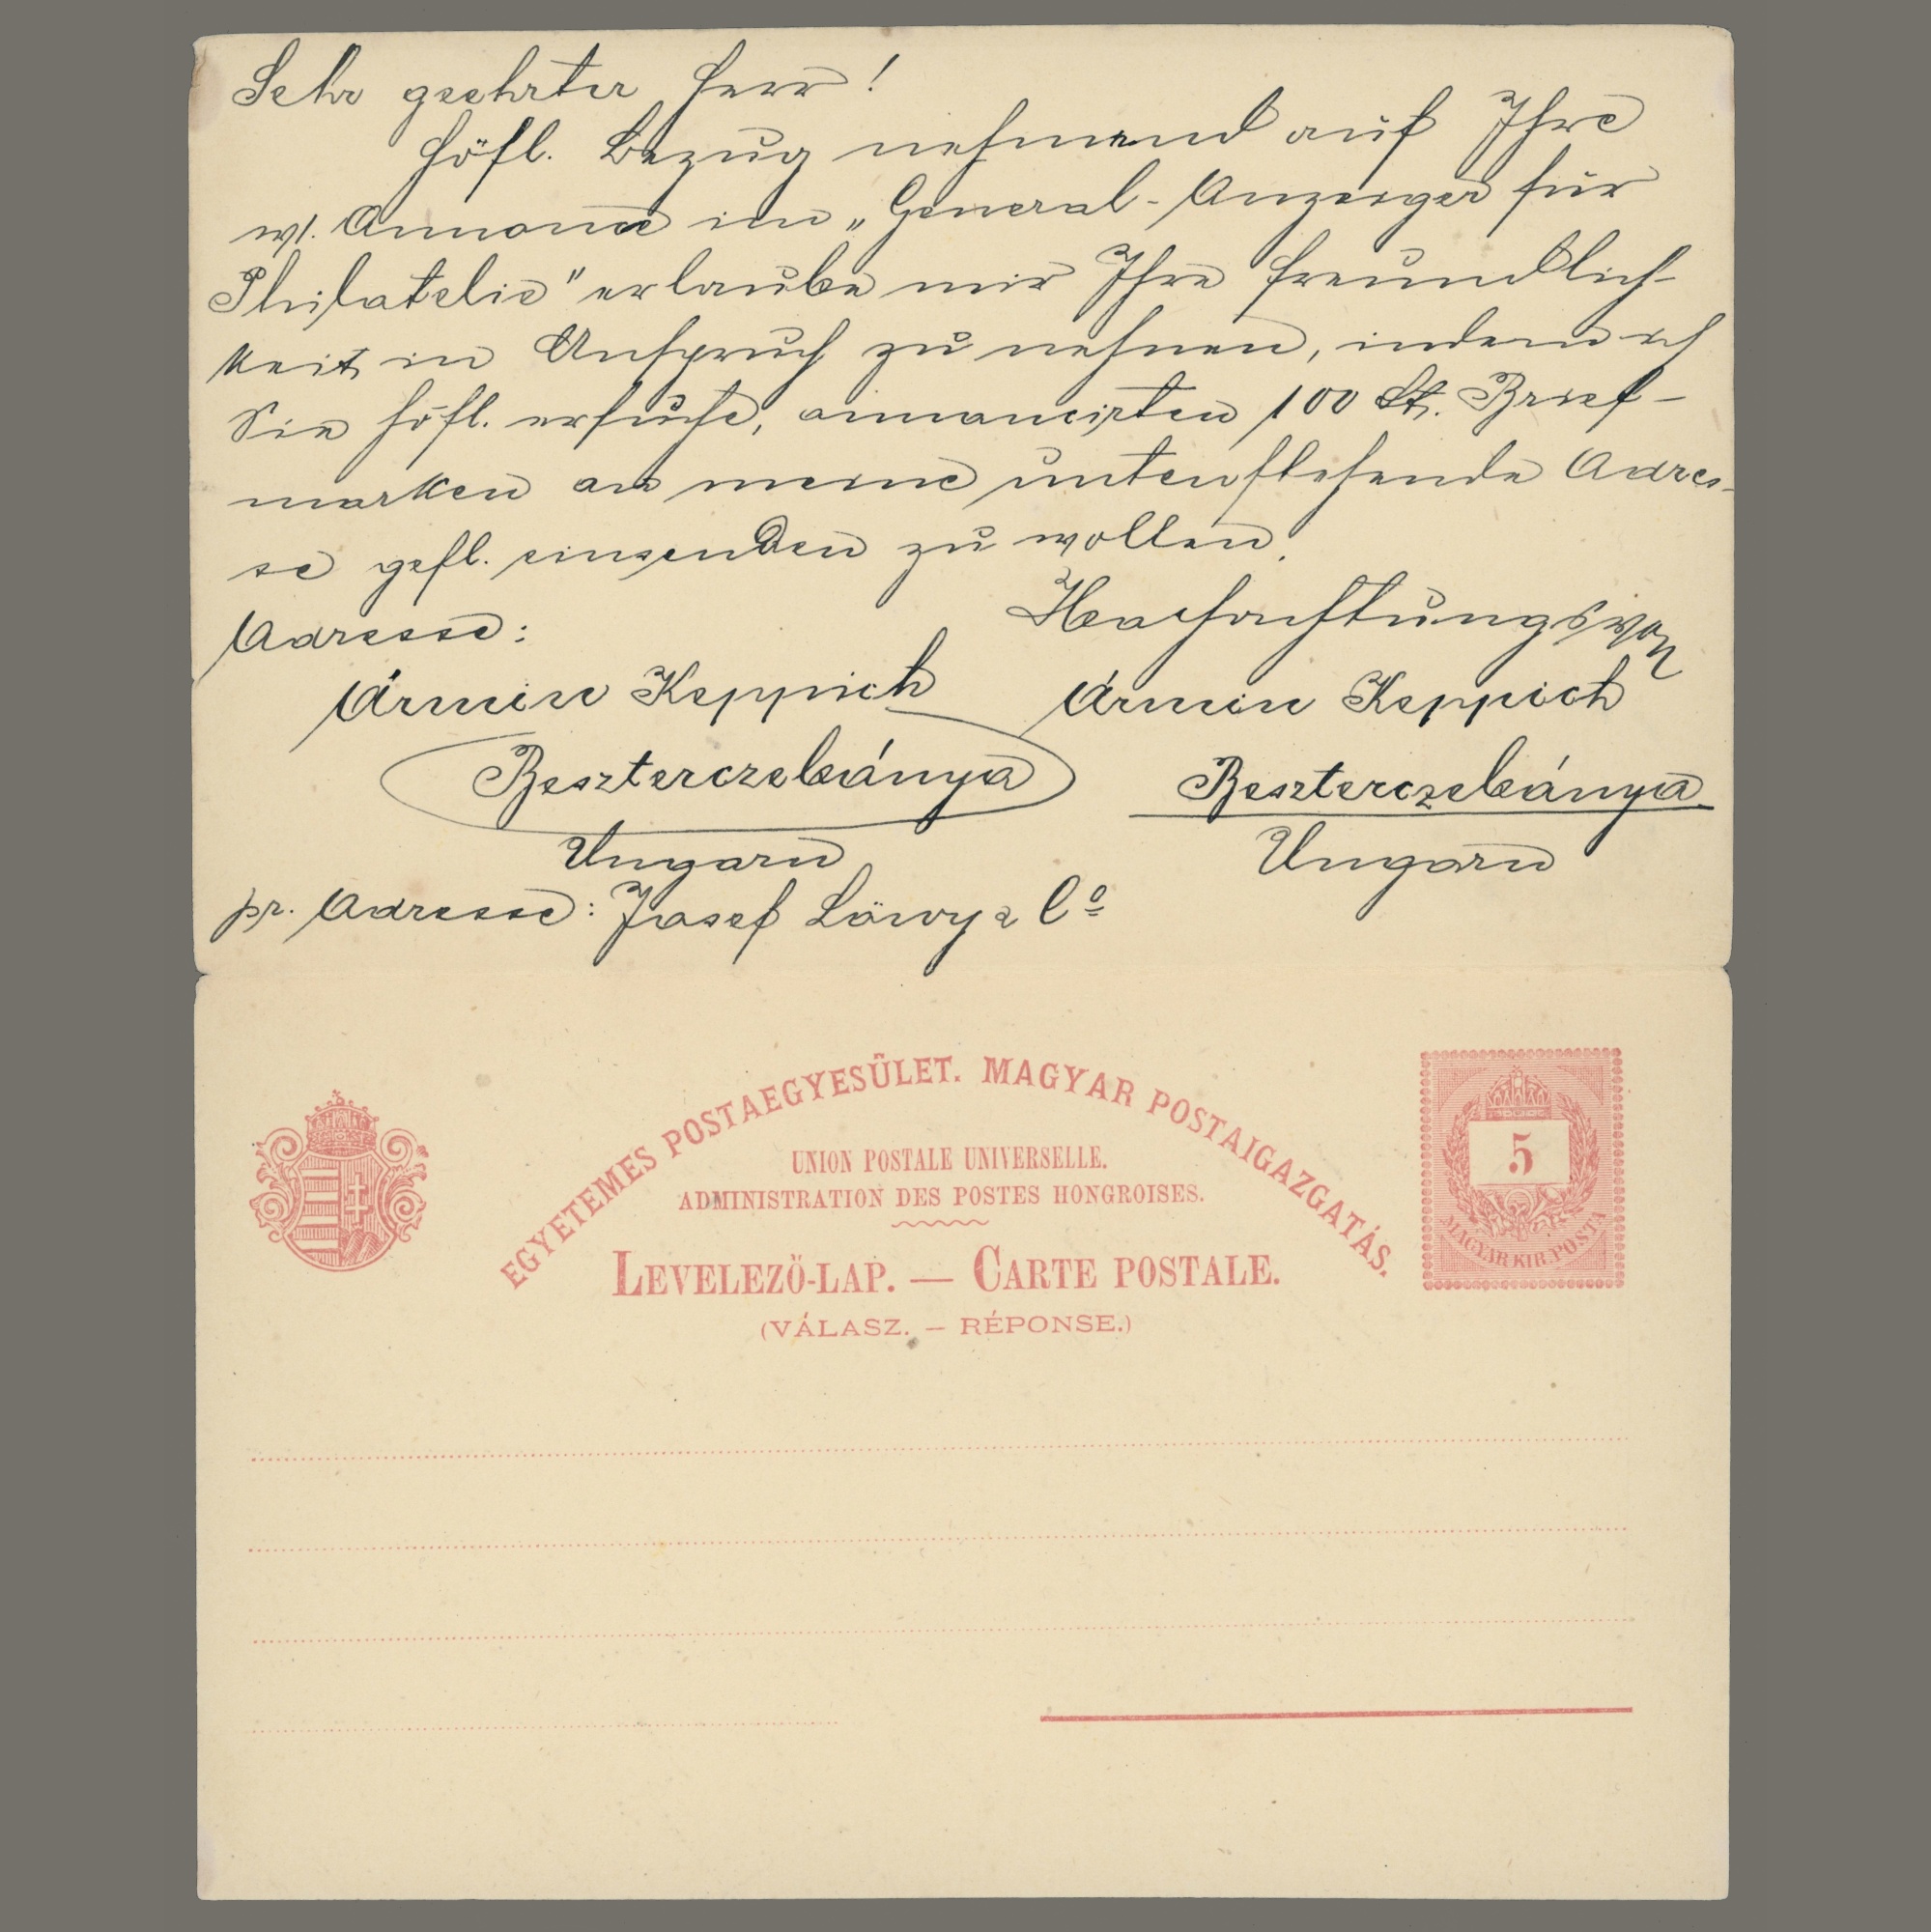 Sehr geehrter Herr!
Höfl. Bezug nehmend auf Ihre
w. Annonce im „General-Anzeiger für
Philatelie" erlaube mir Ihre Freundlich-
keit in Anspruch zu nehmen, indem ich
Sie höfl. ersuche, annoncirten 100 St. Brief-
marken an meine untenstehende Adres-
se gefl. einsenden zu wollen.
Hochachtungsvoll
Adresse:
Ármin Keppich
Beszterczebánya
Ungarn
Ármin Keppich
Beszterczebánya
Ungarn
pr. Adresse: Josef Löwy & Co
EGYETEMES POSTAEGYESÜLET. MAGYAR POSTAIGAZGATÁS.
UNION POSTALE UNIVERSELLE.
ADMINISTRATION DES POSTES HONGROISES.
LEVELEZŐ-LAP. — CARTE POSTALE.
(VÁLASZ. – RÉPONSE.)
5
MAGYAR KIR. POSTA